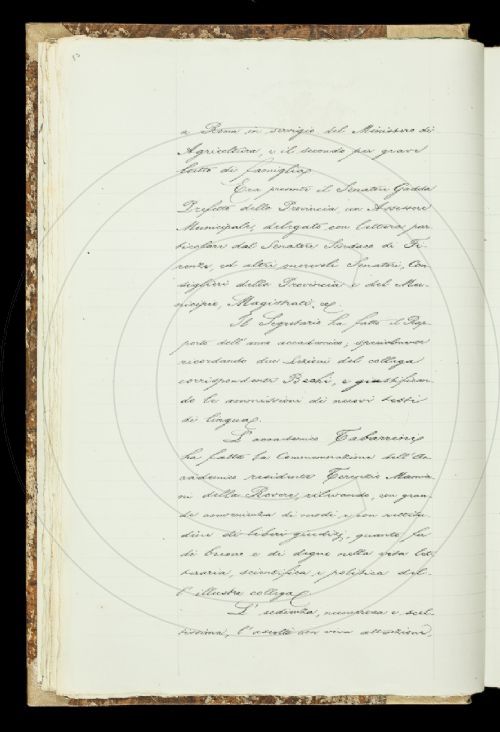 a Roma in servigio del Ministero di
Agricoltura, e il secondo per grave
lutto di famiglia.
Era presente il Senatore Gadda
Prefetto della Provincia, un Assessore
Municipale, delegato con lettera par
ticolare dal Senatore Sindaco di Fi
renze, ed altri onorevoli Senatori, Con
siglieri della Provincia e del Mu
nicipio, Magistrati, ec.
Il Segretario ha fatto il Rap
porto dell'anno accademico,
ricordando due Lezioni del collega
corrispondente Bechi, e giustifican
do le ammissioni di nuovi testi
di lingua.
L'accademico Tabarrini
ha fatto la Commemorazione dell'Ac
cademico residente Terenzio Mamia
ni della Rovere, rilevando, con gran
de convenienza di modi, e con rettitu
dine di liberi giudizj, quanto fu
di buono e di degno nella vita let
teraria, scientifica, e politica del
l'illustre collega.
L'udienza, numerosa e scel
tissima, l'ascoltò con viva attenzione,